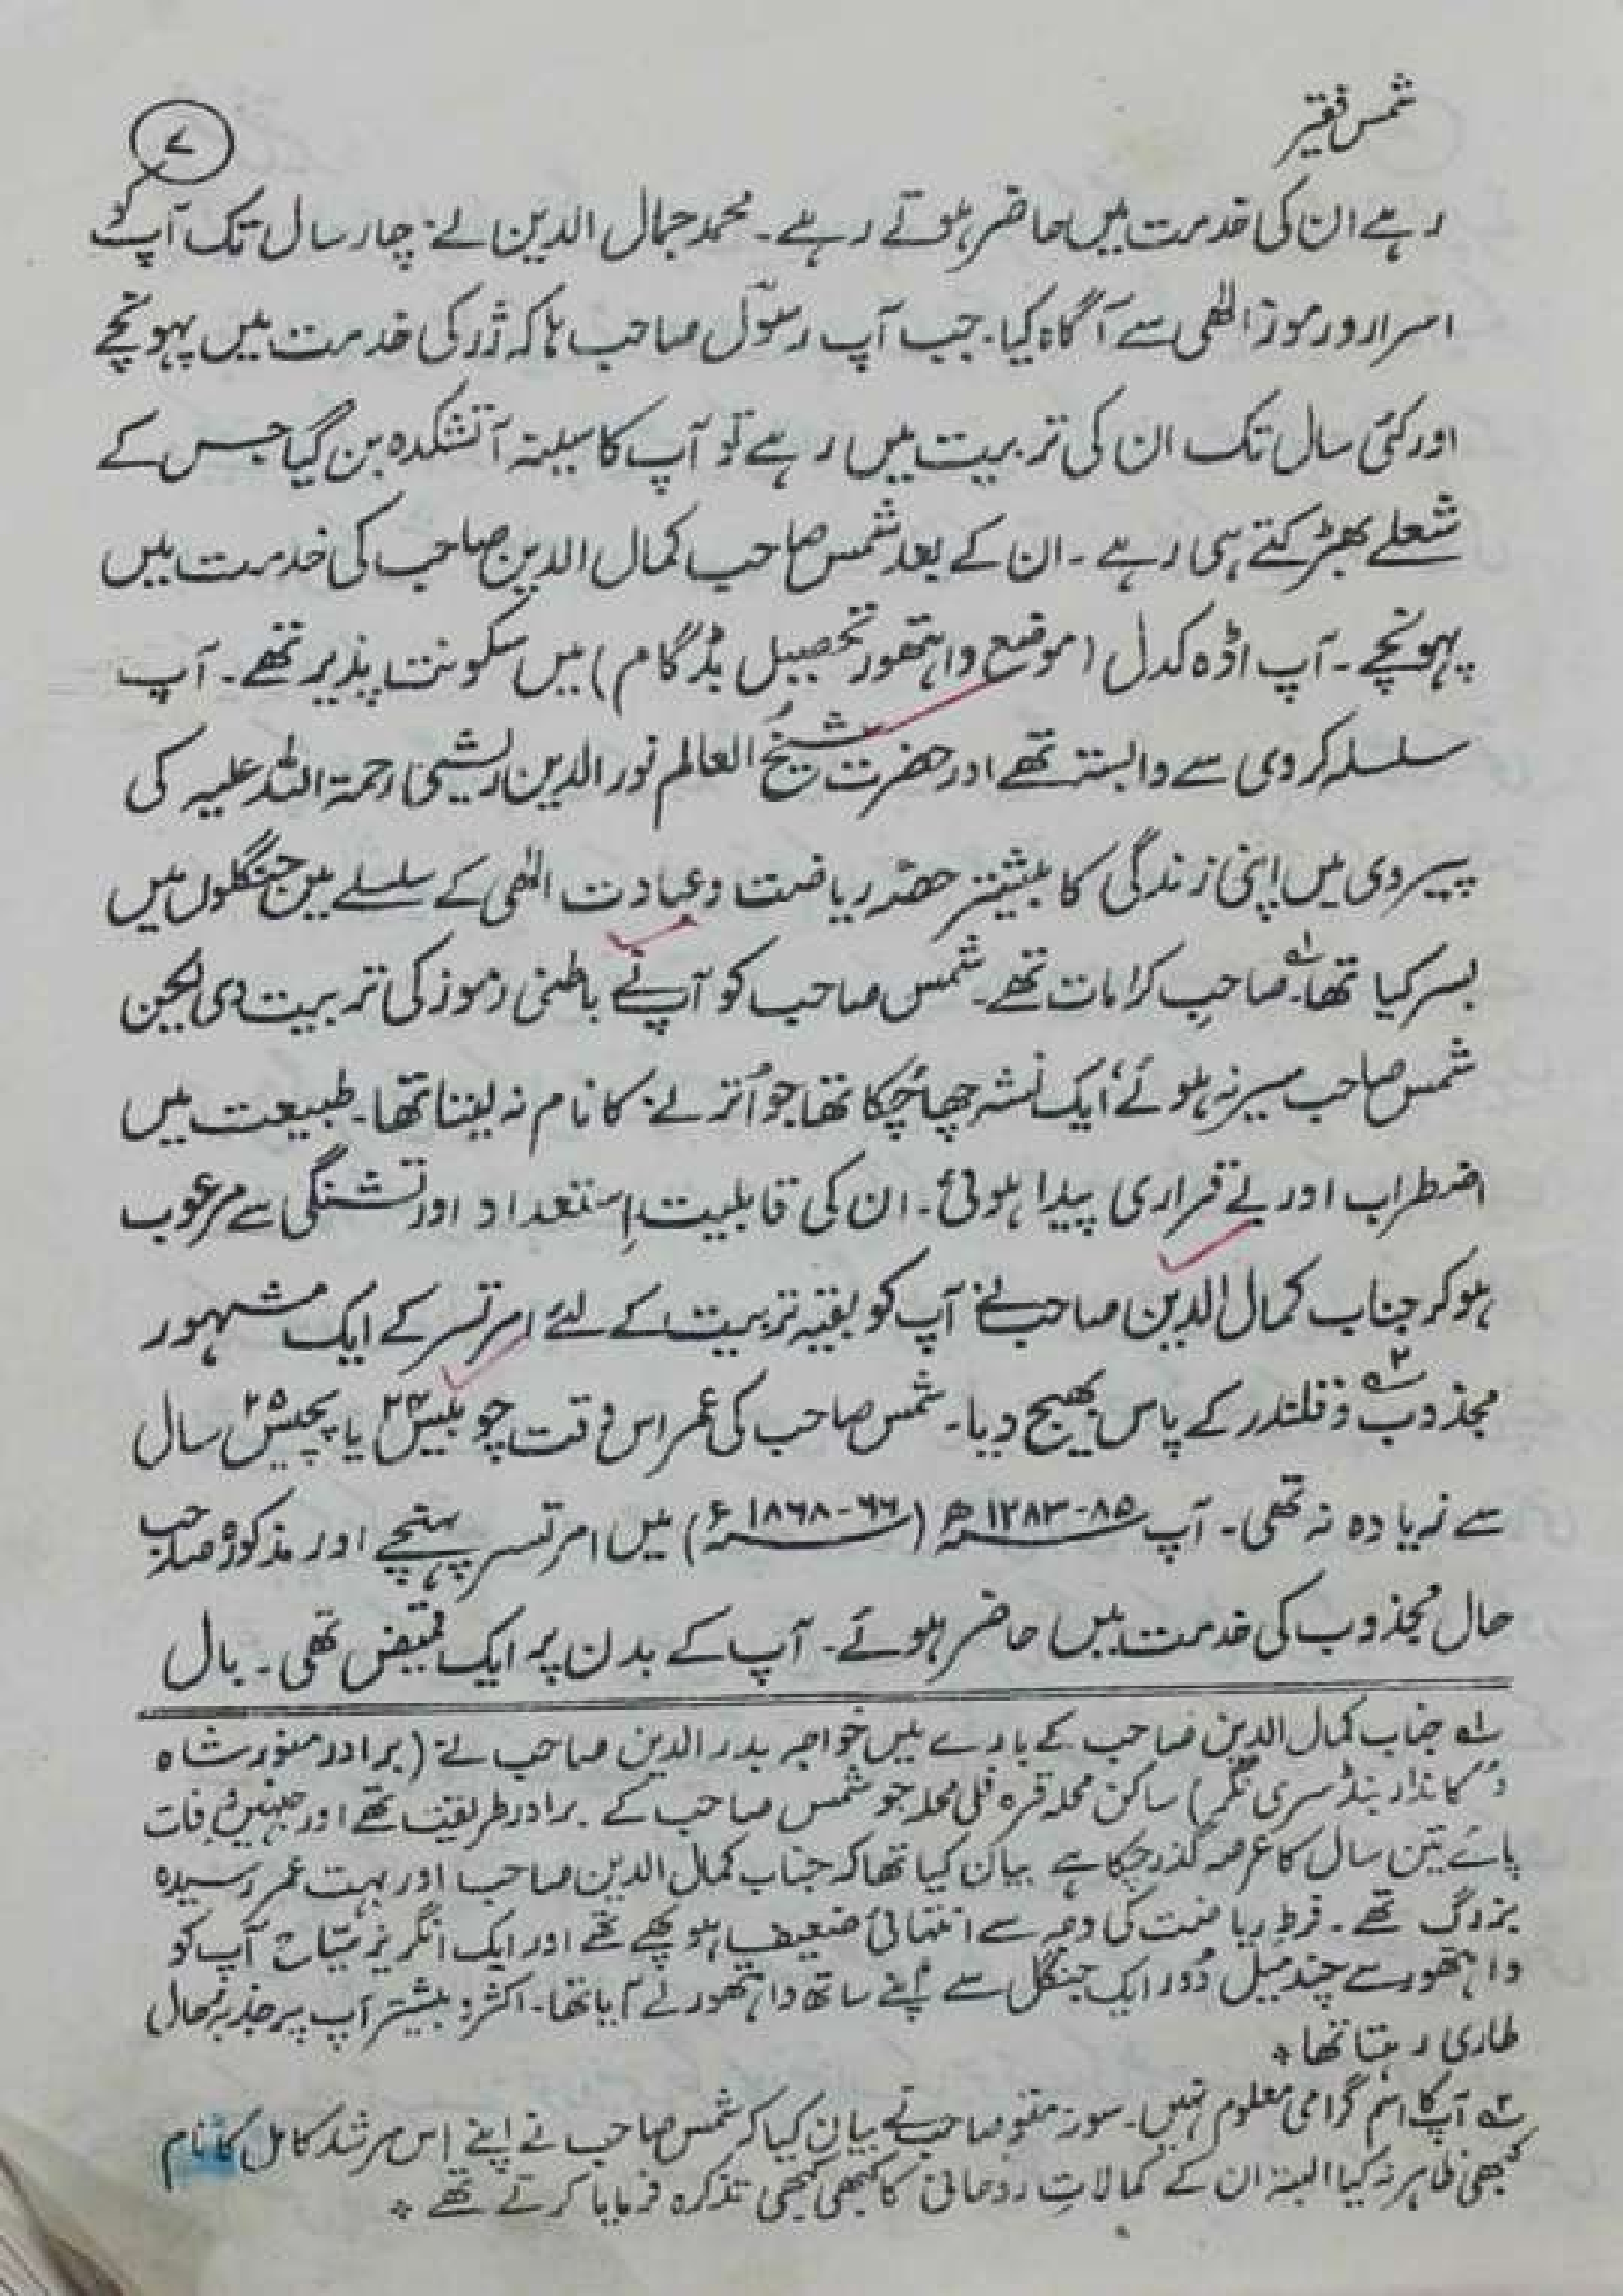 شمس فقیر
۷
رہے ان کی خدمت میں حاضر ہوتے رہے۔ محمد جمال الدین نے چار سال تک آپ کو
اسرار و رموز الٰہی سے آگاہ کیا۔ جب آپ رسول صاحب ہاکہ ژر کی خدمت میں پہونچے
اور کئی سال تک ان کی تربیت میں رہے تو آپ کا سینہ آتشکدہ بن گیا جس کے
شعلے بھڑکتے ہی رہے۔ ان کے بعد شمس صاحب کمال الدین صاحب کی خدمت میں
پہونچے۔ آپ اڈہ کدل (موضع واہتھور تحصیل بڈگام) میں سکونت پذیر تھے۔ آپ
سلسلہ کروی سے وابستہ تھے اور حضرت شیخ العالم نور الدین ریشی رحمۃ اللہ علیہ کی
پیروی میں اپنی زندگی کا بیشتر حصّہ ریاضت و عبادت الٰہی کے سلسلے میں جنگلوں میں
بسر کیا تھا۔ ۱؎ صاحبِ کرامات تھے۔ شمس صاحب کو آپ نے باطنی رموز کی تربیت دی لیکن
شمس صاحب سیر نہ ہوئے، ایک نشہ چھا چُکا تھا جو اُترنے کا نام نہ لیتا تھا۔ طبیعت میں
اضطراب اور بے قراری پیدا ہوئی۔ ان کی قابلیت اِستعداد اور تشنگی سے مرعوب
ہو کر جناب کمال الدین صاحب نے آپ کو بقیہ تربیت کے لئے امرتسر کے ایک مشہور
مجذوب ۲؎ و قلندر کے پاس بھیج دیا۔ شمس صاحب کی عمر اس وقت چوبیس ۲۴ یا پچیس ۲۵ سال
سے زیادہ نہ تھی۔ آپ ۸۵-۱۲۸۳ھ (۶۶-۱۸۶۸ء) میں امرتسر پہنچے اور مذکورہ صاحب
حال مجذوب کی خدمت میں حاضر ہوئے۔ آپ کے بدن پر ایک قمیض تھی۔ بال
۱؎ جناب کمال الدین صاحب کے بارے میں خواجہ بدر الدین صاحب نے (برادر منور شاہ
دُکاندار بنڈ سری نگر) ساکن محلہ قرہ فلی محلہ جو شمس صاحب کے برادر طریقت تھے اور جنہیں وفات
پائے تین سال کا عرصہ گذر چکا ہے بیان کیا تھا کہ جناب کمال الدین صاحب اور بہت عمر رسیدہ
بزرگ تھے۔ فرطِ ریاضت کی وجہ سے انتہائی ضعیف ہو چکے تھے اور ایک انگریز سیّاح آپ کو
واہتھور سے چند میل دُور ایک جنگل سے اپنے ساتھ واہتھور لے آیا تھا۔ اکثر و بیشتر آپ پر جذبہ حال
طاری رہتا تھا *
۲؎ آپ کا اسم گرامی معلوم نہیں۔ صاحب نے بیان کیا کہ شمس صاحب نے اپنے اس مرشد کامل کا نام
کبھی ظاہر نہ کیا البتہ ان کے کمالاتِ روحانی کا کبھی کبھی تذکرہ فرمایا کرتے تھے *